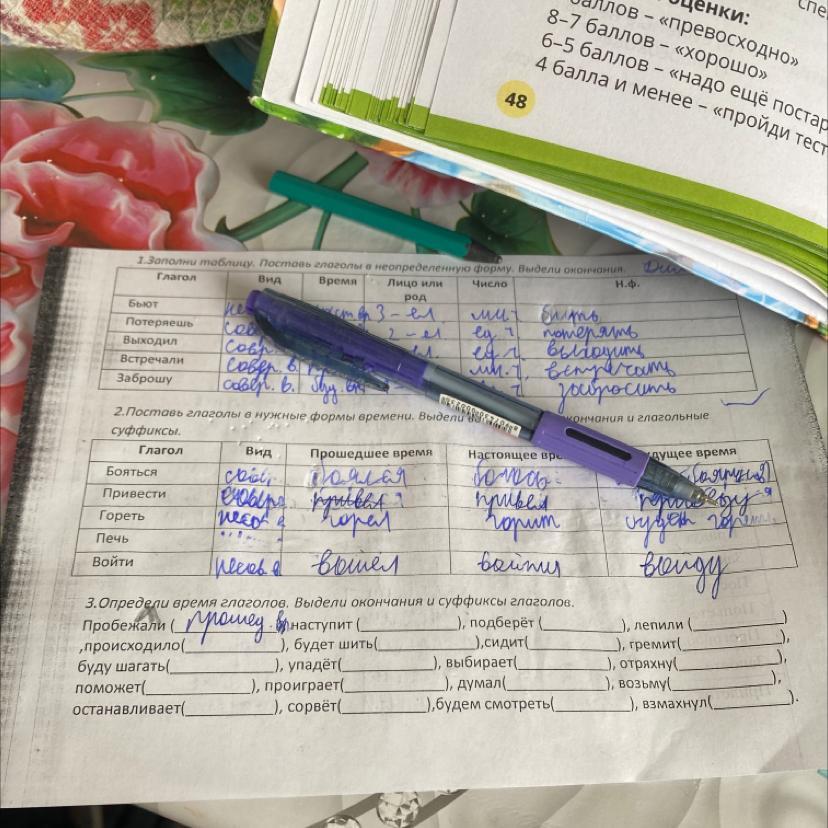 оценки:
баллов – «превосходно»
8–7 баллов – «хорошо»
6–5 баллов – «надо ещё постар
4 балла и менее – «пройди тест
48
1.Заполни таблицу. Поставь глаголы в неопределенную форму. Выдели окончания.
Глагол Вид Время Лицо или род Число Н.ф.
Бьют 3 - ел мн.ч бить
Потеряешь 2 - ел. ед.ч. потерять
Выходил ед.ч. выходить
Встречали совер. в. мн.ч. встречать
Заброшу совер. в. забросить
2.Поставь глаголы в нужные формы времени. Выдели окончания и глагольные
суффиксы.
Глагол Вид Прошедшее время Настоящее вре дущее время
Бояться боялся боюсь
Привести привел привел
Гореть несов горел горит будет гореть
Печь
Войти несов вошел войти войду
3.Определи время глаголов. Выдели окончания и суффиксы глаголов.
Пробежали (прошед. вр, наступит ( ), подберёт ( ), лепили ( )
,происходило( ), будет шить( ),сидит( ), гремит( ),
буду шагать( ), упадёт( ), выбирает( ), отряхну( ),
поможет( ), проиграет( ), думал( ), возьму( ),
останавливает( ), сорвёт( ),будем смотреть( ), взмахнул( ).